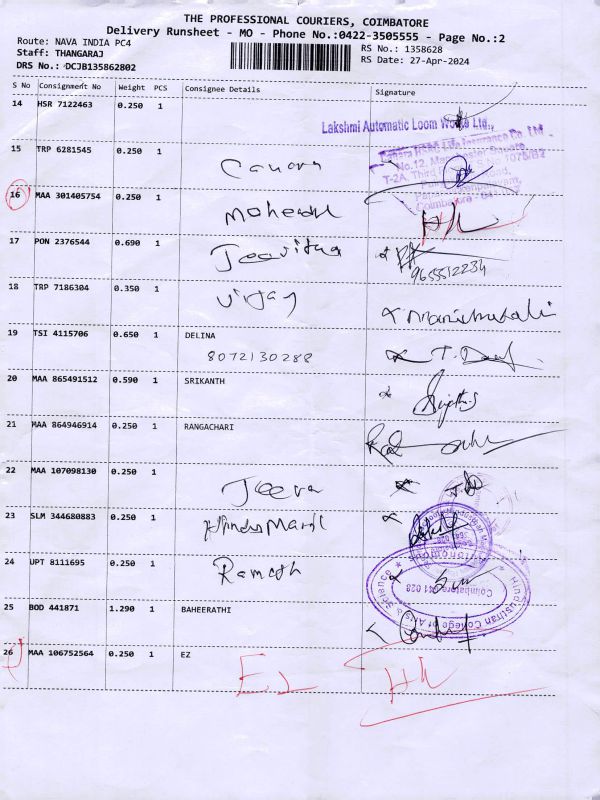 THE PROFESSIONAL COURIERS, COIMBATORE
Delivery Runsheet - MO - Phone No.:0422-3505555 - Page No.:2
Route: NAVA INDIA PC4
Staff: THANGARAJ
DRS No.: DCJB135862802
RS No.: 1358628
RS Date: 27-Apr-2024
S No Consignment No Weight PCS Consignee Details Signature
14 HSR 7122463 0.250 1
Lakshmi Automatic Loom Works Ltd.,
15 TRP 6281545 0.250 1 Canara
16 MAA 301405754 0.250 1
17 PON 2376544 0.690 1 Jeevitha
9655512234
18 TRP 7186304 0.350 1 Vijay
19 TSI 4115706 0.650 1 DELINA
8072130288
20 MAA 865491512 0.590 1 SRIKANTH
21 MAA 864946914 0.250 1 RANGACHARI
22 MAA 107098130 0.250 1 Jeeva
23 SLM 344680883 0.250 1
24 UPT 8111695 0.250 1 Ramesh
Hindusthan College of Arts & Science
Coimbatore 641 028
25 BOD 441871 1.290 1 BAHEERATHI
26 MAA 106752564 0.250 1 EZ
EZ